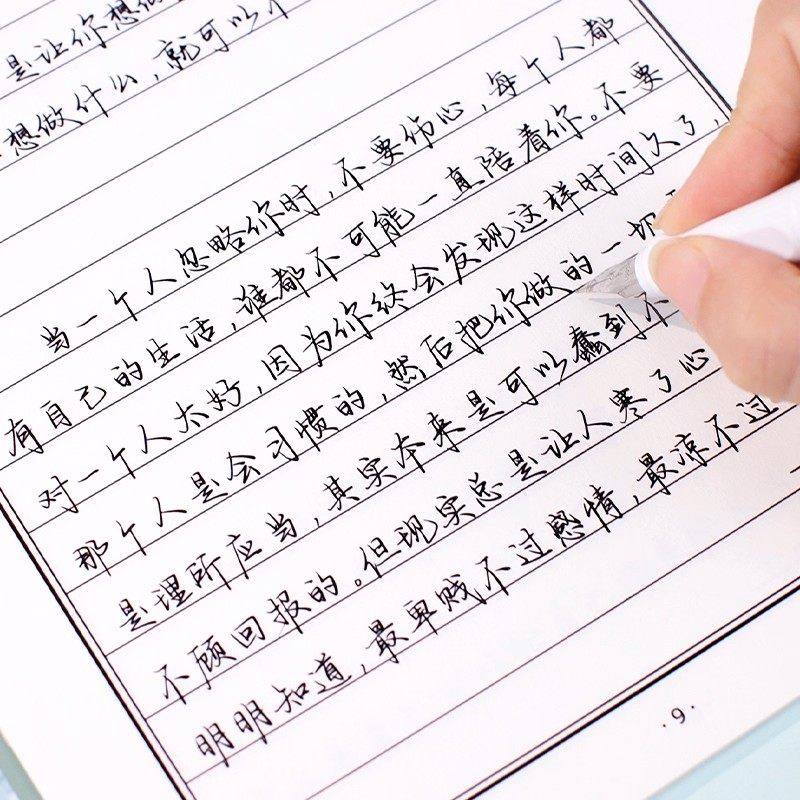 是让你想做
想做什么,就可以不
当一个人忽略你时,不要伤心,每个人都
有自己的生活,谁都不可能一直陪着你。不要
对一个人太好,因为你终会发现这样时间久了,
那个人是会习惯的,然后把你做的一切
是理所应当,其实本来是可以蠢到不
不顾回报的。但现实总是让人寒了心
明明知道,最卑贱不过感情,最凉不过
·9·